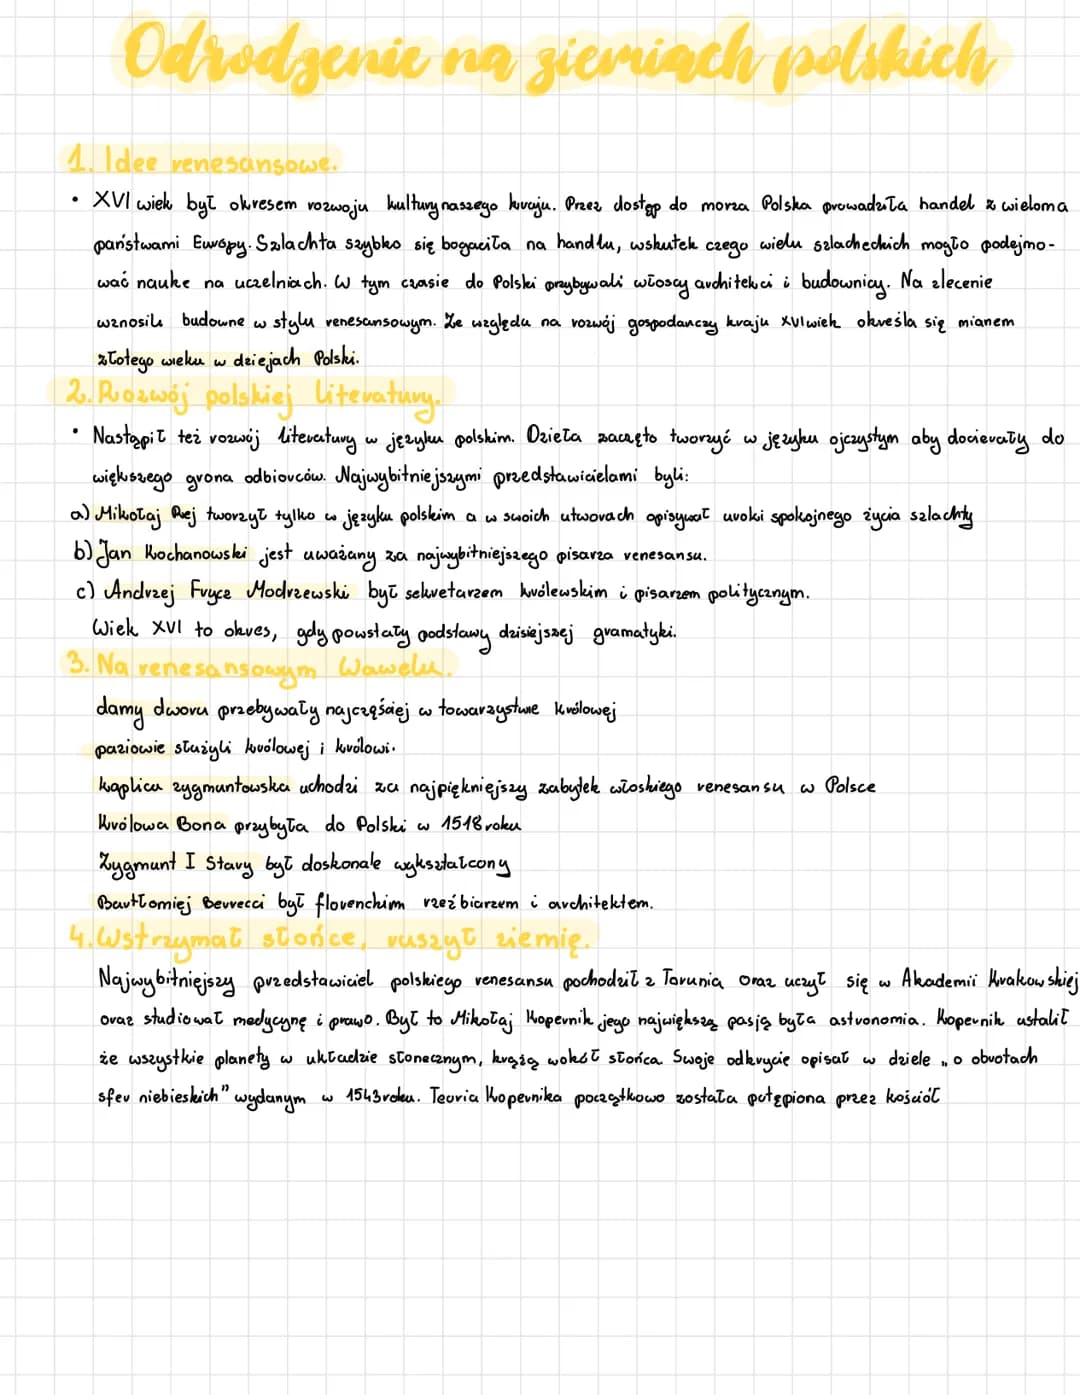 Odrodzenie na ziemiach polskich
1. Idee renesansowe.
• XVI wiek był okresem rozwoju kultury naszego kraju. Przez dostęp do morza Polska prowadziła handel z wieloma
państwami Europy. Szlachta szybko się bogaciła na handlu, wskutek czego wielu szlacheckich mogło podejmo-
wać nauke na uczelniach. W tym czasie do Polski przybywali włoscy architekci i budowniczy. Na zlecenie
wznosili budowne w stylu renesansowym. Ze względu na rozwój gospodarczy kraju XVI wiek określa się mianem
złotego wieku w dziejach Polski.
2. Rozwój polskiej literatury.
• Nastąpił też rozwój literatury w języku polskim. Dzieła zaczęto tworzyć w języku ojczystym aby docierały do
większego grona odbiorców. Najwybitniejszymi przedstawicielami byli:
a) Mikołaj Rej tworzył tylko w języku polskim a w swoich utworach opisywał uroki spokojnego życia szlachty
b) Jan Kochanowski jest uważany za najwybitniejszego pisarza renesansu.
c) Andrzej Frycz Modrzewski był sekretarzem królewskim i pisarzem politycznym.
Wiek XVI to okres, gdy powstały podstawy dzisiejszej gramatyki.
3. Na renesansowym Wawelu.
damy dworu przebywały najczęściej w towarzystwie królowej
paziowie służyli królowej i królowi.
kaplica zygmuntowska uchodzi za najpiękniejszy zabytek włoskiego renesansu w Polsce
Królowa Bona przybyła do Polski w 1518 roku
Zygmunt I Stary był doskonale wykształcony
Bartłomiej Berrecci był florenckim rzeźbiarzem i architektem.
4. Wstrzymał słońce, ruszył ziemię.
Najwybitniejszy przedstawiciel polskiego renesansu pochodził z Torunia oraz uczył się w Akademii Krakowskiej
oraz studiował medycynę i prawo. Był to Mikołaj Kopernik jego największą pasją była astronomia. Kopernik ustalił
że wszystkie planety w układzie słonecznym, krążą wokół słońca. Swoje odkrycie opisał w dziele „o obrotach
sfer niebieskich" wydanym w 1543 roku. Teoria Kopernika początkowo została potępiona przez kościół